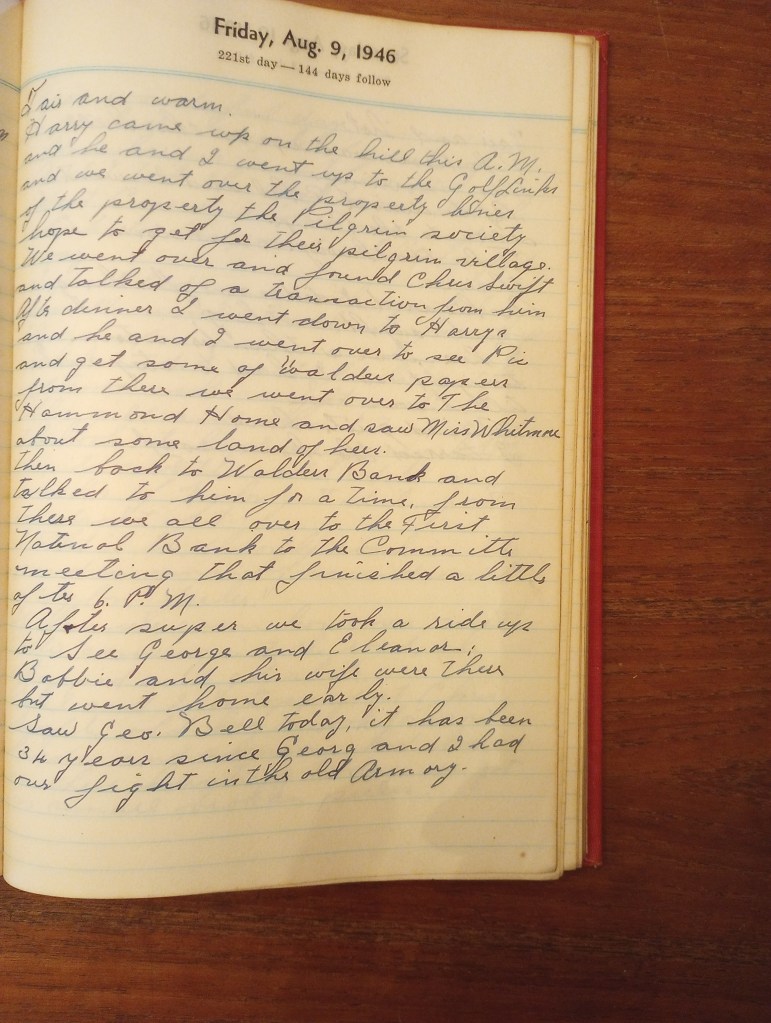 Friday, Aug. 9, 1946
221st day — 144 days follow
Fair and warm.
Harry came up on the hill this A.M.
and he and I went up to the Golf Links
and we went over the property lines
of the property the Pilgrim society
hope to get for their pilgrim village.
We went over and found Chas Swift
and talked of a transaction from him
After dinner I went down to Harrys
and he and I went over to see Pic
and get some of Walders papers
from there we went over to The
Hammond Home and saw Miss Whitmore
about some land of hers.
then back to Walders Bank and
talked to him for a time, from
there we all over to the First
National Bank to the Committe
meeting that finished a little
after 6. P.M.
After super we took a ride up
to See George and Eleanor;
Bobbie and his wife were there
but went home early.
Saw Geo. Bell today, it has been
34 years since Georg and I had
our fight in the old Armory.